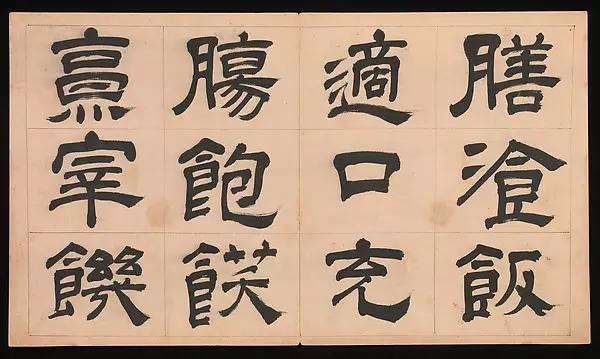 膳湌飯
適口充
腸飽飫
烹宰饑